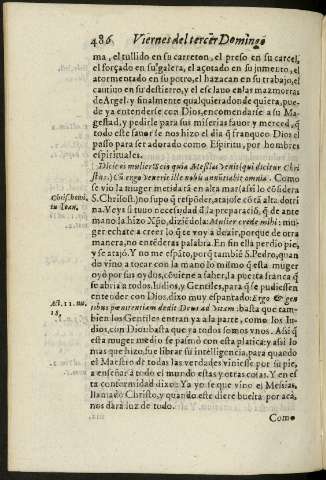 486 Viernes del tercer Domingo
ma, el tullido en su carreton, el preso en su carcel,
el forçado en su galera, el açotado en su jumento, el
atormentado en su potro, el hazacan en su trabajo, el
cautiuo en su destierro, y el esclauo en las mazmorras
de Argel: y finalmente qualquiera donde quiera, pue-
de ya entenderse con Dios, encomendarse a su Ma-
gestad, y pedirle para sus miserias fauor y merced, q̃
todo este fauor se nos hizo el dia q̃ franqueo Dios el
passo para ser adorado como Espiritu, por hombres
espirituales.
Dicit ei mulier: Scio quia Messias venit (qui dicitur Chri
stus.) Cũ ergo venerit ille nobis annūtiabit omnia. Como
se vio la muger metida en alta mar (assi lo cõsidera
Chrisost. homi.
S. Chrisost.) no supo q̃ respõder, atajose cõ tã alta dotri
tu Ioan.
na. Veys su tuuo necesidad d̃ la preparació, q̃ de ante
mano la hizo Xp̃o, diziẽdola: Mulier crede mihi: mu-
ger echate a creer lo q̃ te voy a dezir, porque de otra
manera, no entẽderas palabra. En fin ella perdio pie,
y se atajò. Y no me espãto, porq̃ tambiẽ S. Pedro, quan
do vino a tocar con la mano lo mismo q̃ esta muger
oyó por sus oydos, cõuiene a saber, la puerta franca q̃
se abria a todos, Iudios, y Gentiles, para q̃ se pudiessen
Act. 11. nu.
entender con Dios, dixo muy espantado: Ergo & gen
18.
tibus pœnitentiam dedit Deus ad vitam: basta que tam-
biẽ los Gentiles entran ya a la parte, como los Iu-
dios, con Dios: basta que ya todos somos vnos. Assi q̃
esta muger medio se pasmò con esta platica: y assi lo
mas que hizo, fue librar su inteligencia, para quando
el Maestro de todas las verdades viniesse por su pie,
a enseñar à todo el mundo estas y otras cosas. Y en es
ta conformidad dixo: Ya yo se que vino el Messias,
llamado Christo, y quando este diere buelta por acà,
nos darà luz de todo.
Como